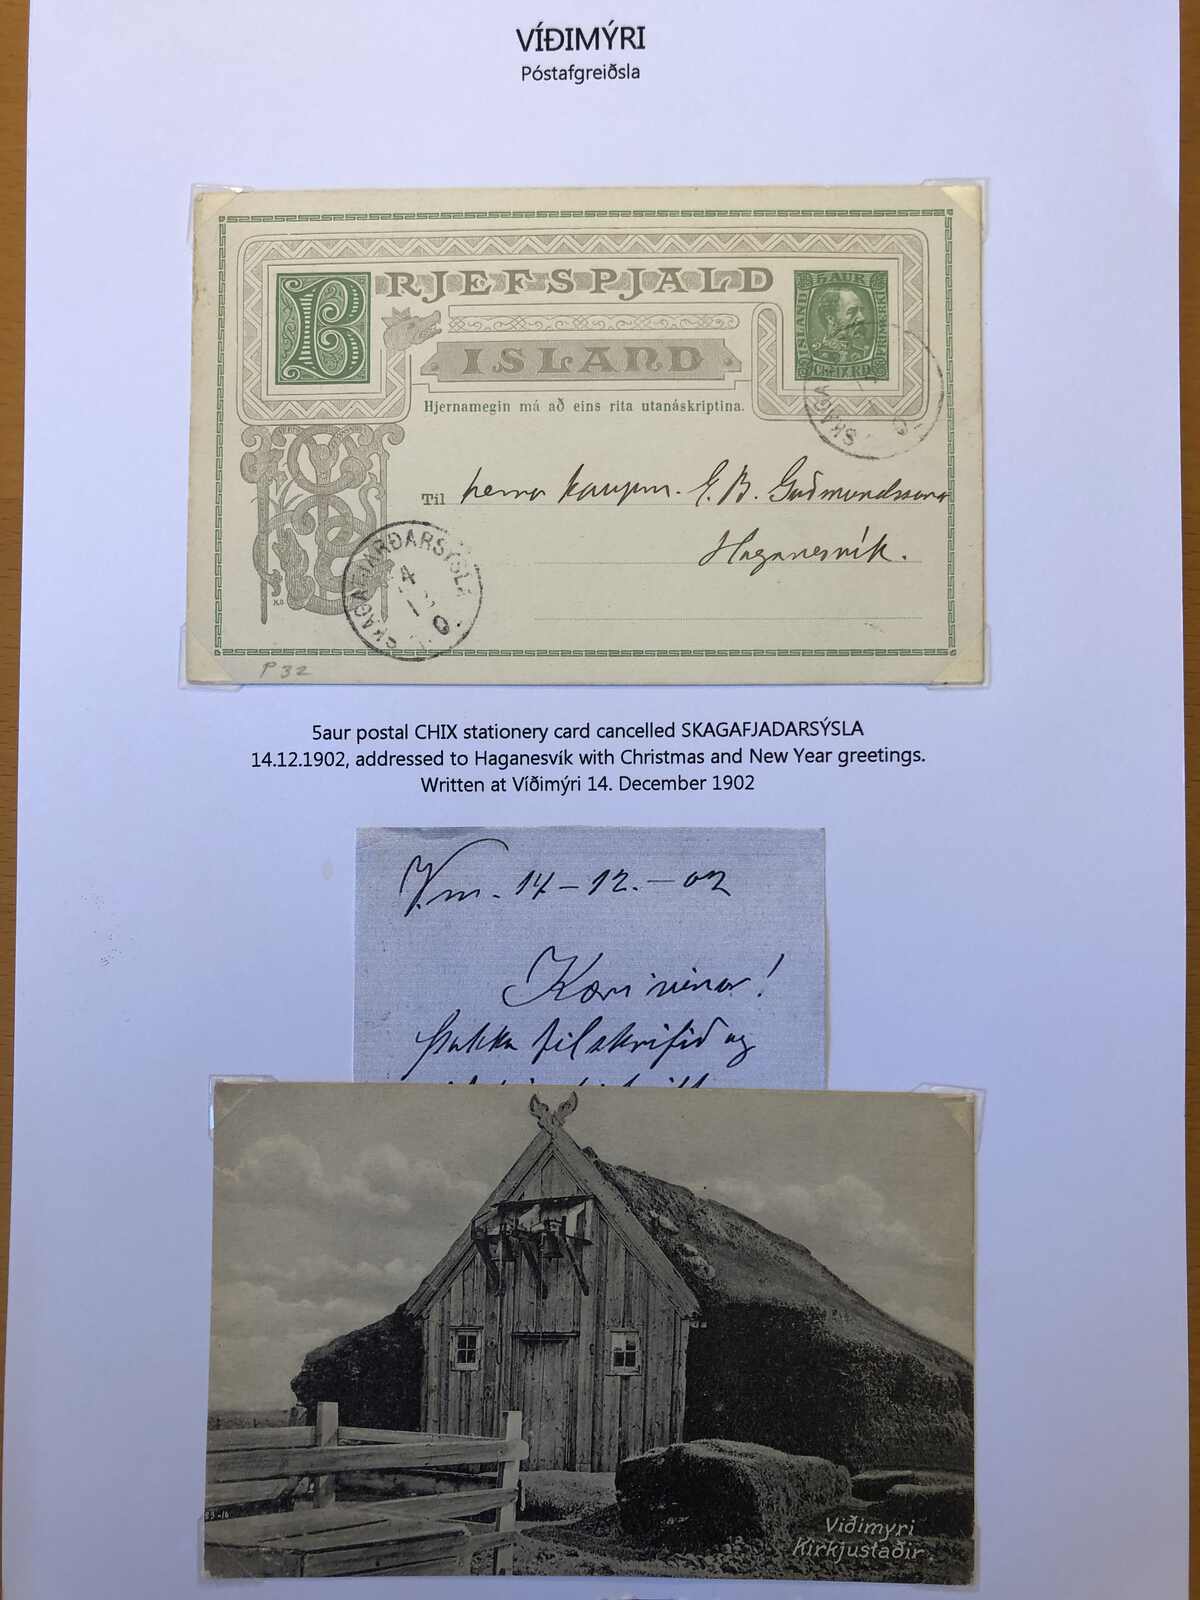 VÍÐIMÝRI
Póstafgreiðsla
BRJEFSPJALD
ISLAND
5 AUR
ISLAND
CHR IX RD
Hjernamegin má að eins rita utanáskriptina.
SKAGA
Til herra kaupm. E. B. Guðmundsson
Haganesvík.
SKAGAFJARÐARSÝSLA
P 32
5aur postal CHIX stationery card cancelled SKAGAFJADARSÝSLA
14.12.1902, addressed to Haganesvík with Christmas and New Year greetings.
Written at Víðimýri 14. December 1902
Vm. 14-12.-02
Kæri vinur!
Þakka tilskrifið og
Viðimyri
Kirkjustaðir